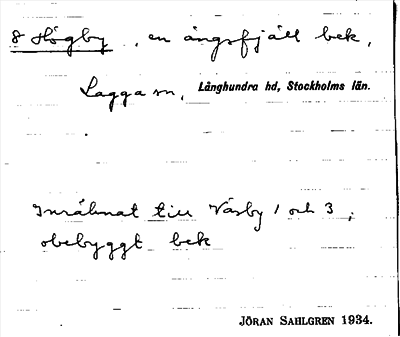 8 Högby, en ängsfjäll bek,
Lagga sn, Långhundra hd, Stockholms län.
Inräknat till Väsby 1 och 3,
obebyggt bek
JÖRAN SAHLGREN 1934.